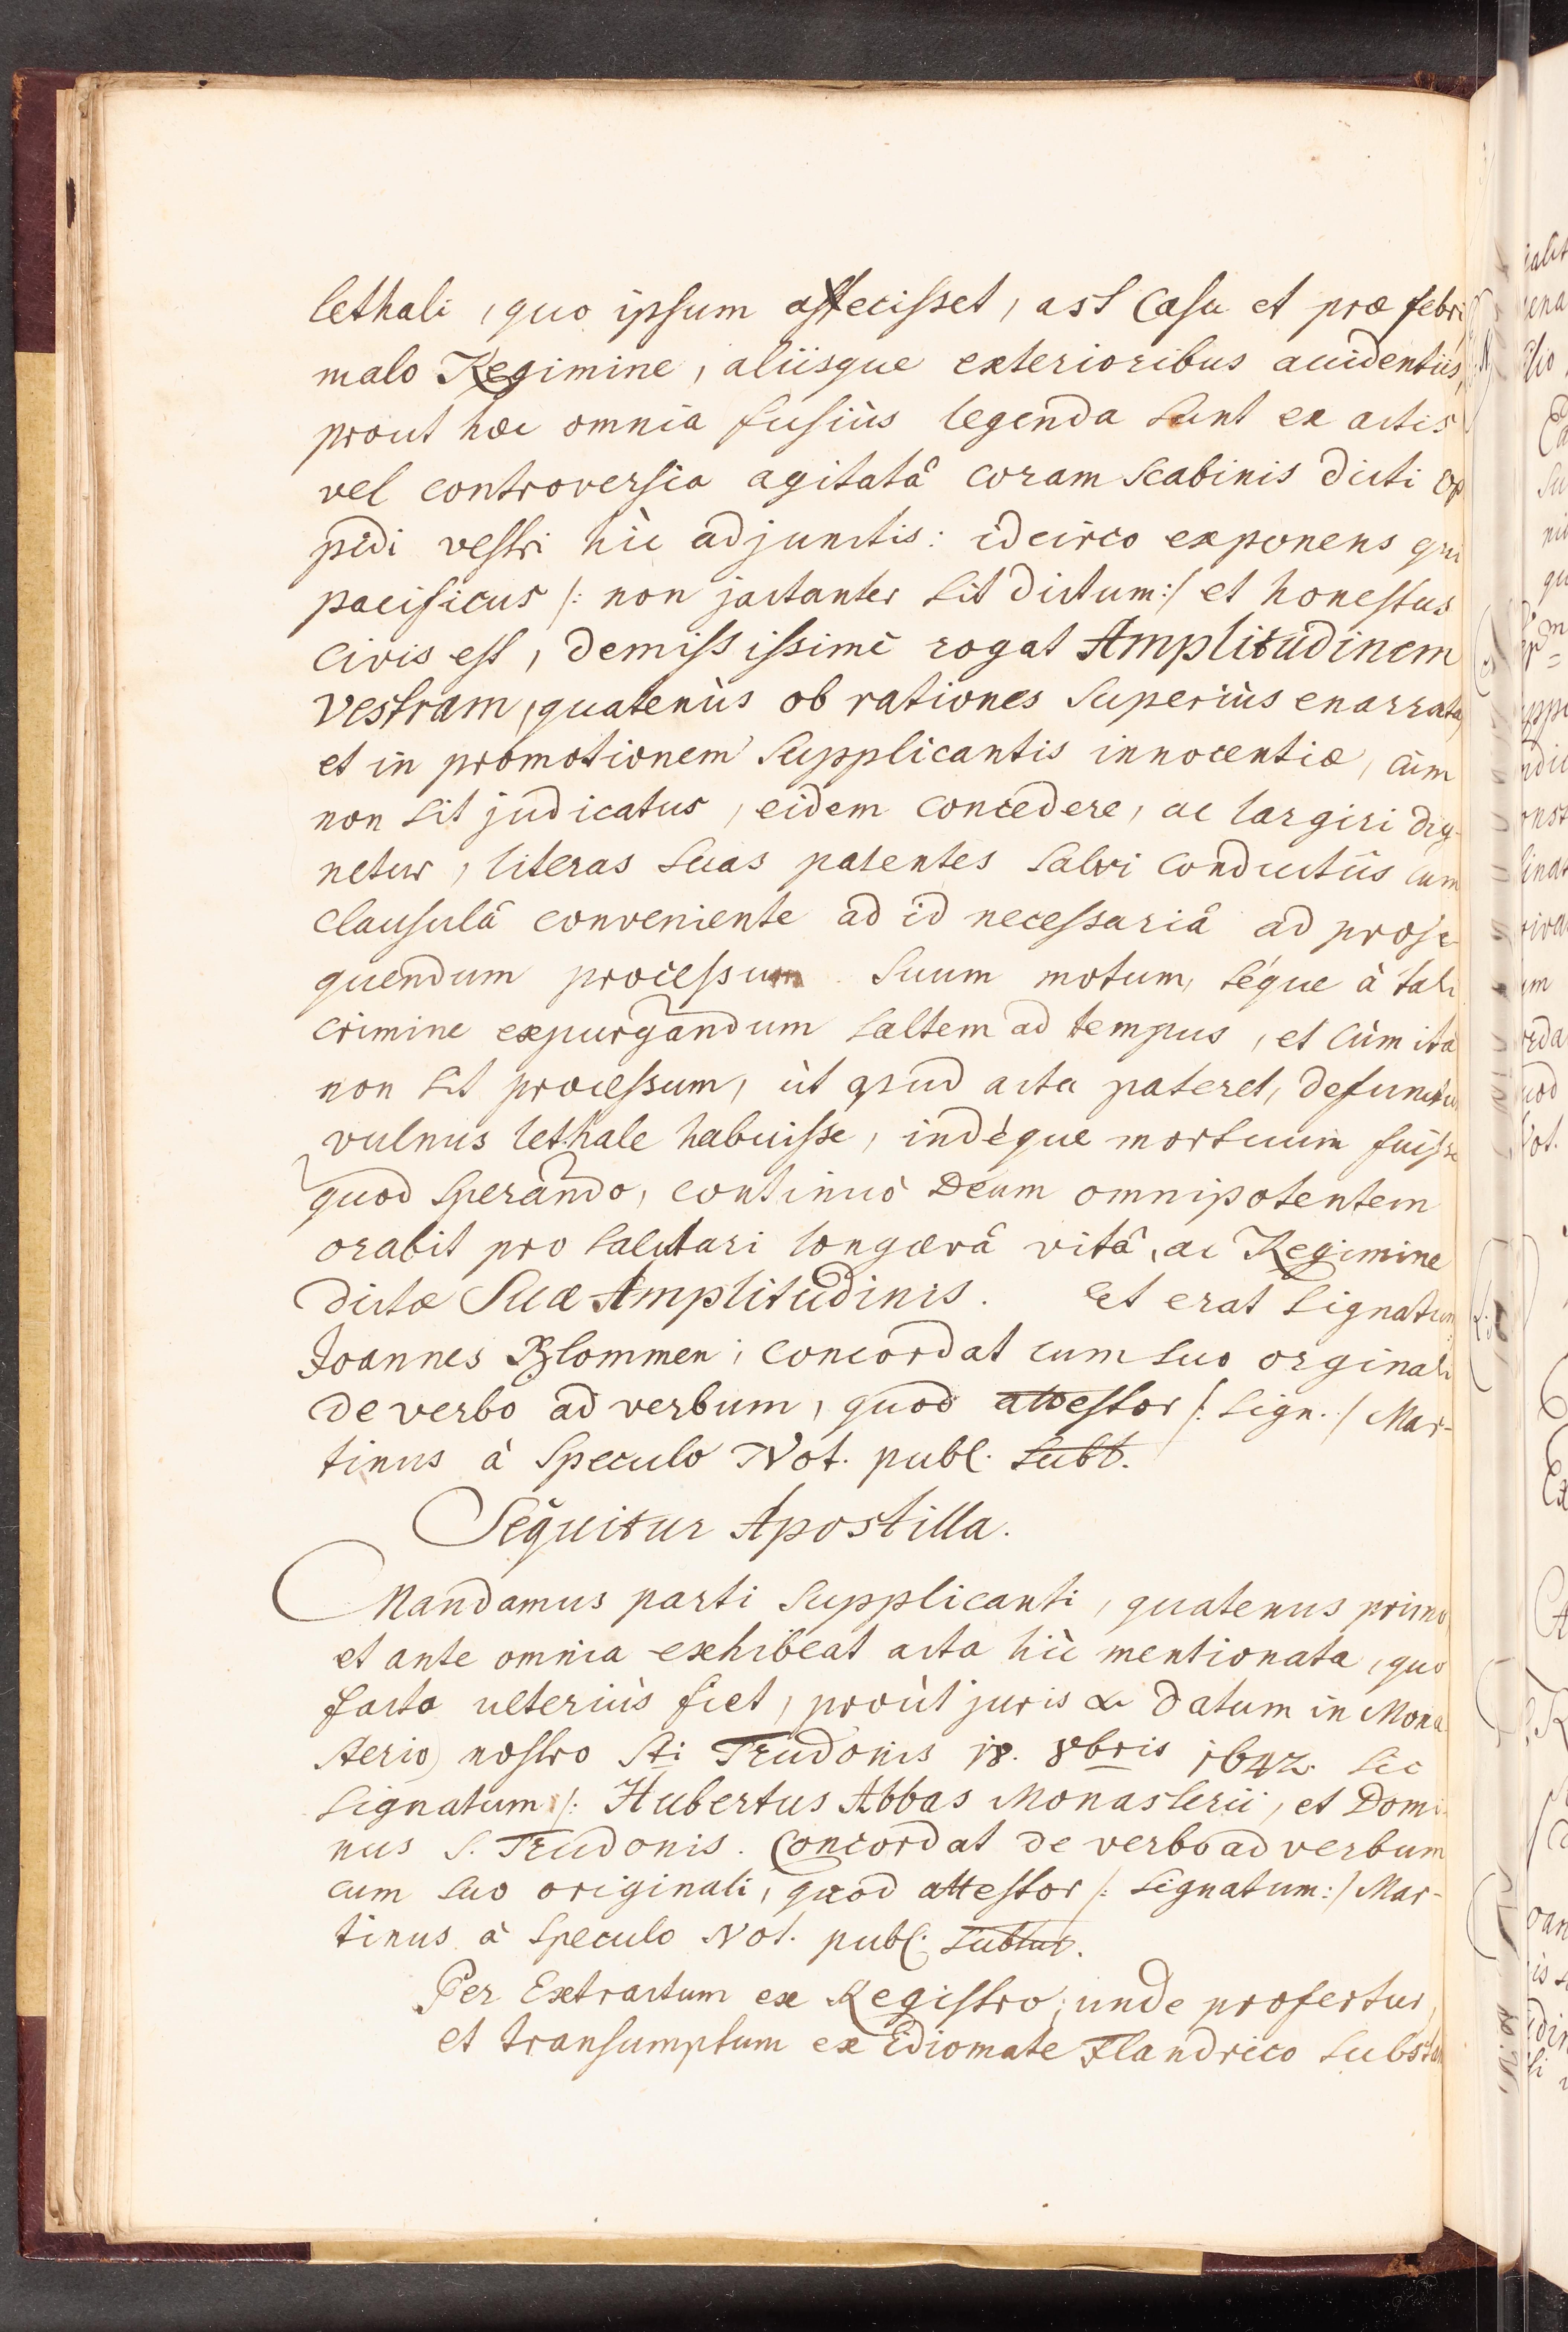 lethali, quo ipsum affecisset, ast Casu et præ febri
malo Regimine, aliisque exterioribus accidentiis,
prout hæc omnia fusiùs legenda sunt ex actis
vel controversia agitatâ coram Scabinis dicti Op
pidi vestri hìc adjunctis: idcirco exponens qui
pacificus /: non jactanter sit dictum :/ et honestus
Civis est, demississimè rogat Amplitudinem
vestram, quatenùs ob rationes superiùs enarratas
et in promotionem Supplicantis innocentiæ, cùm
non sit judicatus, eidem concedere, ac largiri dig-
netur, literas suas patentes Salvi conductûs cum
Clausulâ conveniente ad id necessariâ ad prose-
quendum processum suum motum, séque à tali
crimine expurgandum saltem ad tempus, et cùm ita
non sit processum, ùt apud acta pateret, defunctum
vulnus lethale habuisse, indéque mortuum fuisse
quod sperando, continuò Deum omnipotentem
orabit pro salutari longævâ vitâ, ac Regimine
dictæ Suæ Amplitudinis. Et erat signatum
Joannes Blommen; concordat cum suo orginali
de verbo ad verbum, quod attestor /: sign. / Mar-
tinus à Speculo Not. publ. subt.
Sequitur Apostilla.
Mandamus parti supplicanti, quatenus primo
et ante omnia exhibeat acta hìc mentionata, quo
facto ulteriùs fiet, proùt juris &c datum in Mona
sterio nostro Sti Trudonis 18. 8bris 1642. sic
signatum /: Hubertus Abbas Monasterii, et Domi-
nus S. Trudonis. Concordat de verbo ad verbum
cum suo originali, quod attestor /: signatum :/ Mar-
tinus à Speculo Not. publ. subtus.
Per Extractum ex Registro, unde profertur,
et transumptum ex Idiomate Flandrico substan